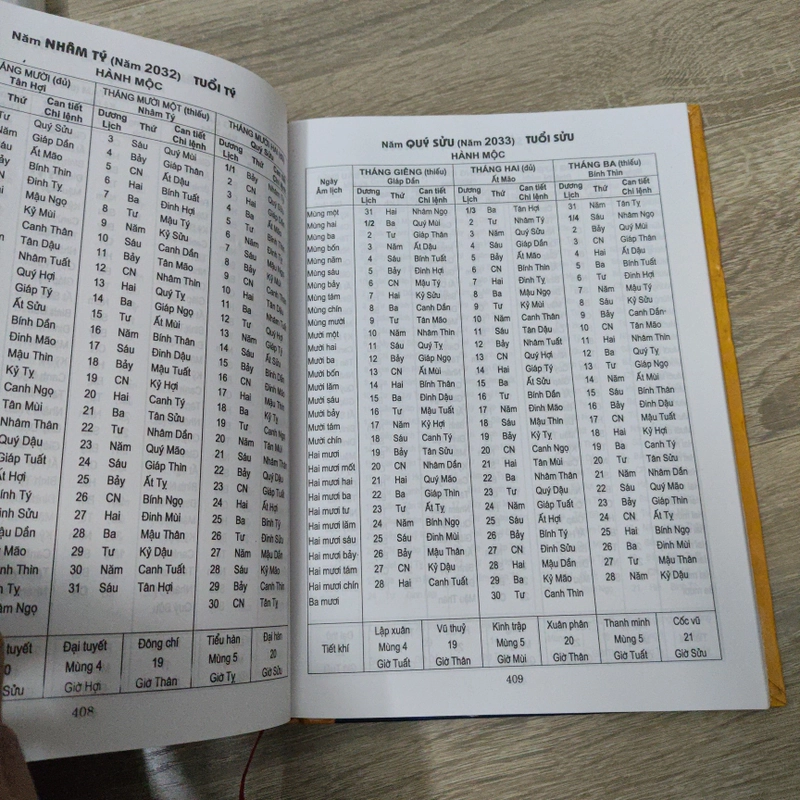 Năm NHÂM TÝ (Năm 2032) TUỔI TÝ
HÀNH MỘC
THÁNG MƯỜI (đủ) THÁNG MƯỜI MỘT (thiếu) THÁNG MƯỜI HAI
Tân Hợi Nhâm Tý Quý Sửu
Thứ Can tiết Chi lệnh Dương Lịch Thứ Can tiết Chi lệnh Dương Lịch Thứ Can tiết Chi lệnh
Tư Quý Sửu 3 Sáu Quý Mùi 1/1 Bảy Nhâm Tý
Năm Giáp Dần 4 Bảy Giáp Thân 2 CN Quý Sửu
Sáu Ất Mão 5 CN Ất Dậu 3 Hai Giáp Dần
Bính Thin 6 Hai Bính Tuất 4 Ba Ất Mão
Đinh Tỵ 7 Ba Đinh Hợi 5 Tư Bính Thin
Mậu Ngọ 8 Tư Mậu Tý 6 Năm Đinh Tỵ
Kỷ Mùi 9 Năm Kỷ Sửu 7 Sáu Mậu Ngọ
Canh Thân 10 Sáu Canh Dần 8 Bảy Kỷ Mùi
Tân Dậu 11 Bảy Tân Mão 9 CN Canh Thân
Nhâm Tuất 12 CN Nhâm Thin 10 Hai Tân Dậu
Quý Hợi 13 Hai Quý Tỵ 11 Ba Nhâm Tuất
Giáp Tý 14 Ba Giáp Ngọ 12 Tư Quý Hợi
Ất Sửu 15 Tư Ất Mùi 13 Năm Giáp Tý
Bính Dần 16 Năm Bính Thân 14 Sáu Ất Sửu
Đinh Mão 17 Sáu Đinh Dậu 15 Bảy Bính Dần
Mậu Thin 18 Bảy Mậu Tuất 16 CN Đinh Mão
Kỷ Tỵ 19 CN Kỷ Hợi 17 Hai Mậu Thin
Canh Ngọ 20 Hai Canh Tý 18 Ba Kỷ Tỵ
Tân Mùi 21 Ba Tân Sửu 19 Tư Canh Ngọ
Nhâm Thân 22 Tư Nhâm Dần 20 Năm Tân Mùi
Quý Dậu 23 Năm Quý Mão 21 Sáu Nhâm Thân
Giáp Tuất 24 Sáu Giáp Thin 22 Bảy Quý Dậu
Ất Hợi 25 Bảy Ất Tỵ 23 CN Giáp Tuất
Bính Tý 26 CN Bính Ngọ 24 Hai Ất Hợi
Đinh Sửu 27 Hai Đinh Mùi 25 Ba Bính Tý
Mậu Dần 28 Ba Mậu Thân 26 Tư Đinh Sửu
Kỷ Mão 29 Tư Kỷ Dậu 27 Năm Mậu Dần
Canh Thin 30 Năm Canh Tuất 28 Sáu Kỷ Mão
Tân Tỵ 31 Sáu Tân Hợi 29 Bảy Canh Thin
Nhâm Ngọ 30 CN Tân Tỵ
tuyết Đại tuyết Đông chí Tiểu hàn Đại hàn
Mùng 4 19 Mùng 5 20
Sửu Giờ Hợi Giờ Thân Giờ Tỵ Giờ Sửu
408
Năm QUÝ SỬU (Năm 2033) TUỔI SỬU
HÀNH MỘC
Ngày Âm lịch THÁNG GIÊNG (thiếu) THÁNG HAI (đủ) THÁNG BA (thiếu)
Giáp Dần Ất Mão Bính Thin
Dương Lịch Thứ Can tiết Chi lệnh Dương Lịch Thứ Can tiết Chi lệnh Dương Lịch Thứ Can tiết Chi lệnh
Mùng một 31 Hai Nhâm Ngọ 1/3 Ba Tân Hợi 31 Năm Tân Tỵ
Mùng hai 1/2 Ba Quý Mùi 2 Tư Nhâm Tý 1/4 Sáu Nhâm Ngọ
Mùng ba 2 Tư Giáp Thân 3 Năm Quý Sửu 2 Bảy Quý Mùi
Mùng bốn 3 Năm Ất Dậu 4 Sáu Giáp Dần 3 CN Giáp Thân
Mùng năm 4 Sáu Bính Tuất 5 Bảy Ất Mão 4 Hai Ất Dậu
Mùng sáu 5 Bảy Đinh Hợi 6 CN Bính Thin 5 Ba Bính Tuất
Mùng bảy 6 CN Mậu Tý 7 Hai Đinh Tỵ 6 Tư Đinh Hợi
Mùng tám 7 Hai Kỷ Sửu 8 Ba Mậu Ngọ 7 Năm Mậu Tý
Mùng chín 8 Ba Canh Dần 9 Tư Kỷ Mùi 8 Sáu Kỷ Sửu
Mùng mười 9 Tư Tân Mão 10 Năm Canh Thân 9 Bảy Canh Dần
Mười một 10 Năm Nhâm Thin 11 Sáu Tân Dậu 10 CN Tân Mão
Mười hai 11 Sáu Quý Tỵ 12 Bảy Nhâm Tuất 11 Hai Nhâm Thin
Mười ba 12 Bảy Giáp Ngọ 13 CN Quý Hợi 12 Ba Quý Tỵ
Mười bốn 13 CN Ất Mùi 14 Hai Giáp Tý 13 Tư Giáp Ngọ
Mười lăm 14 Hai Bính Thân 15 Ba Ất Sửu 14 Năm Ất Mùi
Mười sáu 15 Ba Đinh Dậu 16 Tư Bính Dần 15 Sáu Bính Thân
Mười bảy 16 Tư Mậu Tuất 17 Năm Đinh Mão 16 Bảy Đinh Dậu
Mười tám 17 Năm Kỷ Hợi 18 Sáu Mậu Thin 17 CN Mậu Tuất
Mười chín 18 Sáu Canh Tý 19 Bảy Kỷ Tỵ 18 Hai Kỷ Hợi
Hai mươi 19 Bảy Tân Sửu 20 CN Canh Ngọ 19 Ba Canh Tý
Hai mươi mốt 20 CN Nhâm Dần 21 Hai Tân Mùi 20 Tư Tân Sửu
Hai mươi hai 21 Hai Quý Mão 22 Ba Nhâm Thân 21 Năm Nhâm Dần
Hai mươi ba 22 Ba Giáp Thin 23 Tư Quý Dậu 22 Sáu Quý Mão
Hai mươi tư 23 Tư Ất Tỵ 24 Năm Giáp Tuất 23 Bảy Giáp Thin
Hai mươi lăm 24 Năm Bính Ngọ 25 Sáu Ất Hợi 24 CN Ất Tỵ
Hai mươi sáu 25 Sáu Đinh Mùi 26 Bảy Bính Tý 25 Hai Bính Ngọ
Hai mươi bảy 26 Bảy Mậu Thân 27 CN Đinh Sửu 26 Ba Đinh Mùi
Hai mươi tám 27 CN Kỷ Dậu 28 Hai Mậu Dần 27 Tư Mậu Thân
Hai mươi chín 28 Hai Canh Tuất 29 Ba Kỷ Mão 28 Năm Kỷ Dậu
Ba mươi 30 Tư Canh Thin
Tiết khí Lập xuân Vũ thuỷ Kinh trập Xuân phân Thanh minh Cốc vũ
Mùng 4 19 Mùng 5 20 Mùng 5 21
Giờ Tuất Giờ Thân Giờ Mùi Giờ Thân Giờ Tuất Giờ Sửu
409